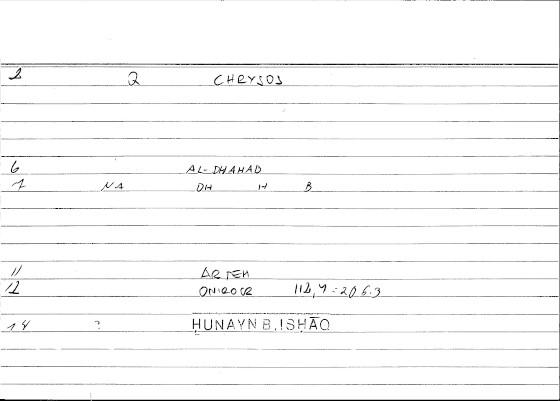 2 Q CHRYSOS
6 AL-DHAHAB
1 NA DH H B
11 ARTEM
12 ONIROCR 112,4 = 206.3
14 ? ḤUNAYN B. ISḤĀQ